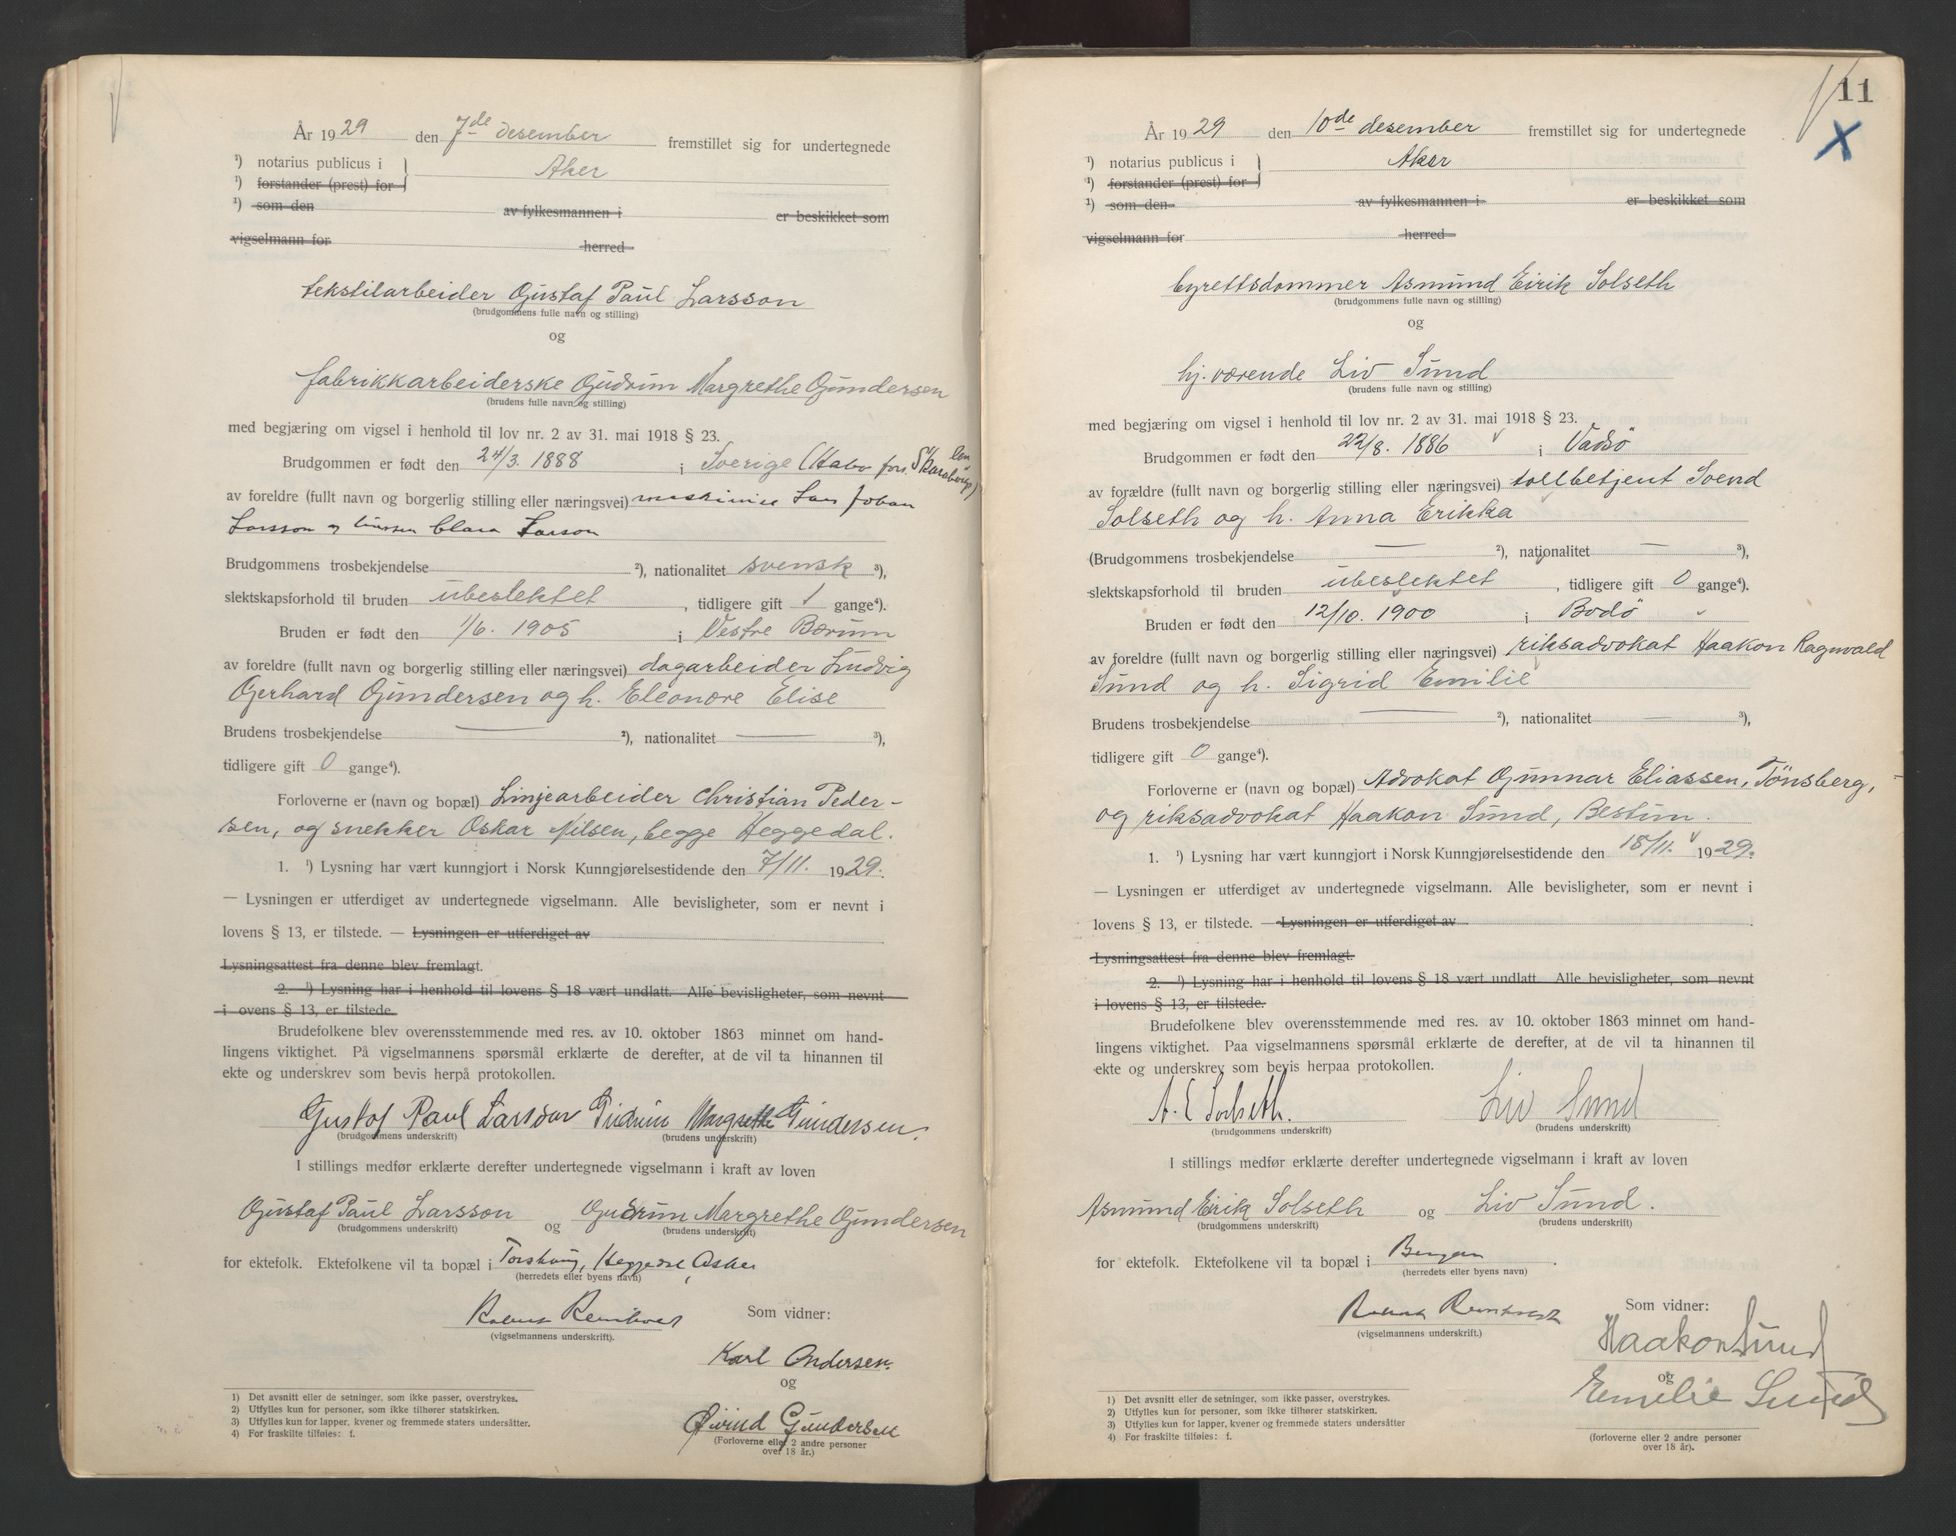 År 1929 den 7de desember fremstillet sig for undertegnede
¹) notarius publicus i
¹) forstander (prest) for
Aker
¹) som den av fylkesmannen i er beskikket som
vigselmann for herred
tekstilarbeider Gustaf Paul Larsson
(brudgommens fulle navn og stilling)
og
fabrikkarbeiderske Gudrun Margrethe Gundersen
(brudens fulle navn og stilling)
med begjæring om vigsel i henhold til lov nr. 2 av 31. mai 1918 § 23.
Brudgommen er født den 24/3. 1888 i Sverige (Habo fors. Skaraborgs len)
av foreldre (fullt navn og borgerlig stilling eller næringsvei) maskinist Lars Johan
Larsson og Clara Larson
Brudgommens trosbekjendelse ²), nationalitet svensk ³),
slektskapsforhold til bruden ubeslektet, tidligere gift 1 gange⁴).
Bruden er født den 1/6. 1905 i Vestre Bærum
av foreldre (fullt navn og borgerlig stilling eller næringsvei) dagarbeider Ludvig
Gerhard Gundersen og h. Eleonore Elise
Brudens trosbekjendelse — ²), nationalitet — ³),
tidligere gift 0 gange⁴).
Forloverne er (navn og bopæl) Linjearbeider Christian Peder-
sen, og snekker Oskar Nilsen, begge Heggedal.
1. ¹) Lysning har vært kunngjort i Norsk Kunngjørelsestidende den 7/11. 1929.
— Lysningen er utferdiget av undertegnede vigselmann. Alle bevisligheter, som er nevnt i
lovens § 13, er tilstede. — Lysningen er utferdiget av
Lysningsattest fra denne blev fremlagt.
2. ¹) Lysning har i henhold til lovens § 18 vært undlatt. Alle bevisligheter, som nevnt
i ovens § 13, er tilstede.
Brudefolkene blev overensstemmende med res. av 10. oktober 1863 minnet om hand-
lingens viktighet. På vigselmannens spørsmål erklærte de derefter, at de vil ta hinannen til
ekte og underskrev som bevis herpå protokollen.
Gustaf Paul Larsson Gudrun Margrethe Gundersen.
(brudgommens underskrift) (brudens underskrift)
I stillings medfør erklærte derefter undertegnede vigselmann i kraft av loven
Gustaf Paul Larsson og Gudrun Margrethe Gundersen
(brudgommens underskrift) (brudens underskrift)
for ektefolk. Ektefolkene vil ta bopæl i Heggedal, Asker
(herredets eller byens navn)
(vigselmannens underskrift).
Som vidner:
Karl Andersen.
og
Øivind Gundersen
(Forloverne eller 2 andre personer
over 18 år.)
1) Det avsnitt eller de setninger, som ikke passer, overstrykes.
2) Utfylles kun for personer, som ikke tilhører statskirken.
3) Utfylles kun for lapper, kvener og fremmede staters undersåtter.
4) For fraskilte tilføies: f.
11
X
År 1929 den 10de desember fremstillet sig for undertegnede
¹) notarius publicus i
¹) forstander (prest) for
Aker
¹) som den av fylkesmannen i er beskikket som
vigselmann for herred
byrettsdommer Asmund Eirik Solseth
(brudgommens fulle navn og stilling)
og
hj.værende Liv Sund
(brudens fulle navn og stilling)
med begjæring om vigsel i henhold til lov nr. 2 av 31. mai 1918 § 23.
Brudgommen er født den 22/8. 1886 i Vadsö
av forældre (fullt navn og borgerlig stilling eller næringsvei) tollbetjent Svend
Solseth og h. Anna Erikka
(Brudgommens trosbekjendelse — ²), nationalitet — ³),
slektskapsforhold til bruden ubeslektet, tidligere gift 0 gange⁴).
Bruden er født den 12/10. 1900 i Bodö
av foreldre (fullt navn og borgerlig stilling eller næringsvei) riksadvokat Haakon Ragnvald
Sund og h. Sigrid Emilie
Brudens trosbekjendelse — ²), nationalitet — ³),
tidligere gift 0 gange⁴).
Forloverne er (navn og bopæl) Advokat Gunnar Eliassen, Tönsberg,
og riksadvokat Haakon Sund, Bestum.
1. ¹) Lysning har vært kunngjort i Norsk Kunngjørelsestidende den 18/11. 1929.
— Lysningen er utferdiget av undertegnede vigselmann. Alle bevisligheter, som er nevnt i
lovens § 13, er tilstede. — Lysningen er utferdiget av
Lysningsattest fra denne blev fremlagt.
2. ¹) Lysning har i henhold til lovens § 18 vært undlatt. Alle bevisligheter, som nevnt
i lovens § 13, er tilstede.
Brudefolkene blev overensstemmende med res. av 10. oktober 1863 minnet om hand-
lingens viktighet. Paa vigselmannens spørsmål erklærte de derefter, at de vil ta hinannen til
ekte og underskrev som bevis herpaa protokollen.
A. E Solseth. Liv Sund
(brudgommens underskrift) (brudens underskrift)
I stillings medfør erklærte derefter undertegnede vigselmann i kraft av loven
Asmund Eirik Solseth og Liv Sund.
(brudgommens underskrift) (brudens underskrift)
for ektefolk. Ektefolkene vil ta bopæl i Bergen.
(herredets eller byens navn)
(vigselmannens underskrift.)
Som vidner:
Haakon Sund
og
Emelie Sund
(forloverne eller 2 andre personer
over 18 år).
1) Det avsnitt eller de setninger, som ikke passer, overstrykes.
2) Utfylles kun for personer, som ikke tilhører statskirken.
3) Utfylles kun for lapper, kvener og fremmede staters undersåtter
4) For fraskilte tilføies: f.